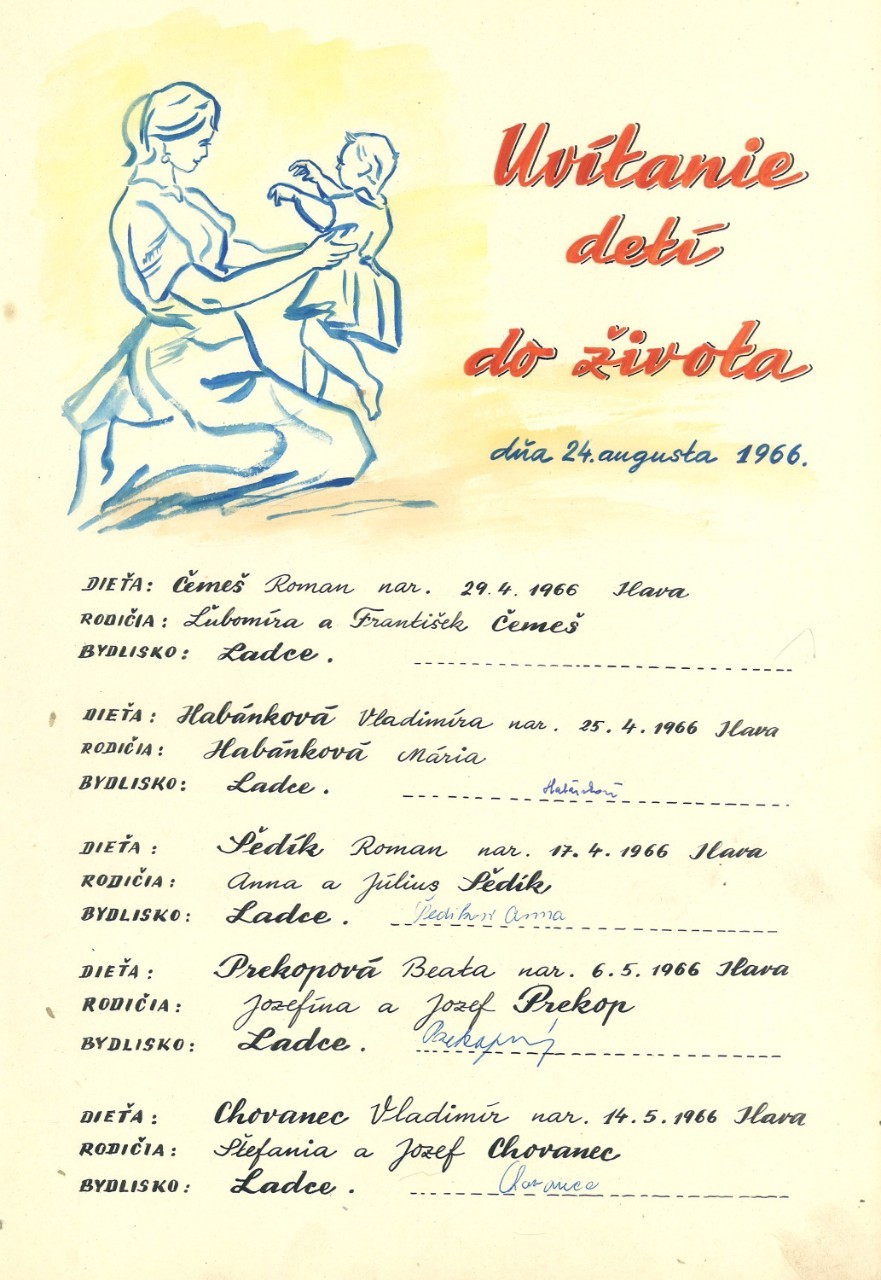 Uvítanie
detí
do života
dňa 24. augusta 1966.
DIEŤA: Čemeš Roman nar. 29. 4. 1966 Ilava
RODIČIA: Ľubomíra a František Čemeš
BYDLISKO: Ladce.
DIEŤA: Habánková Vladimíra nar. 25. 4. 1966 Ilava
RODIČIA: Habánková Mária
BYDLISKO: Ladce. Habánková
DIEŤA: Šedík Roman nar. 17. 4. 1966 Ilava
RODIČIA: Anna a Július Šedík
BYDLISKO: Ladce. Anna
DIEŤA: Prekopová Beata nar. 6. 5. 1966 Ilava
RODIČIA: Jozefína a Jozef Prekop
BYDLISKO: Ladce.
DIEŤA: Chovanec Vladimír nar. 14. 5. 1966 Ilava
RODIČIA: Štefania a Jozef Chovanec
BYDLISKO: Ladce.